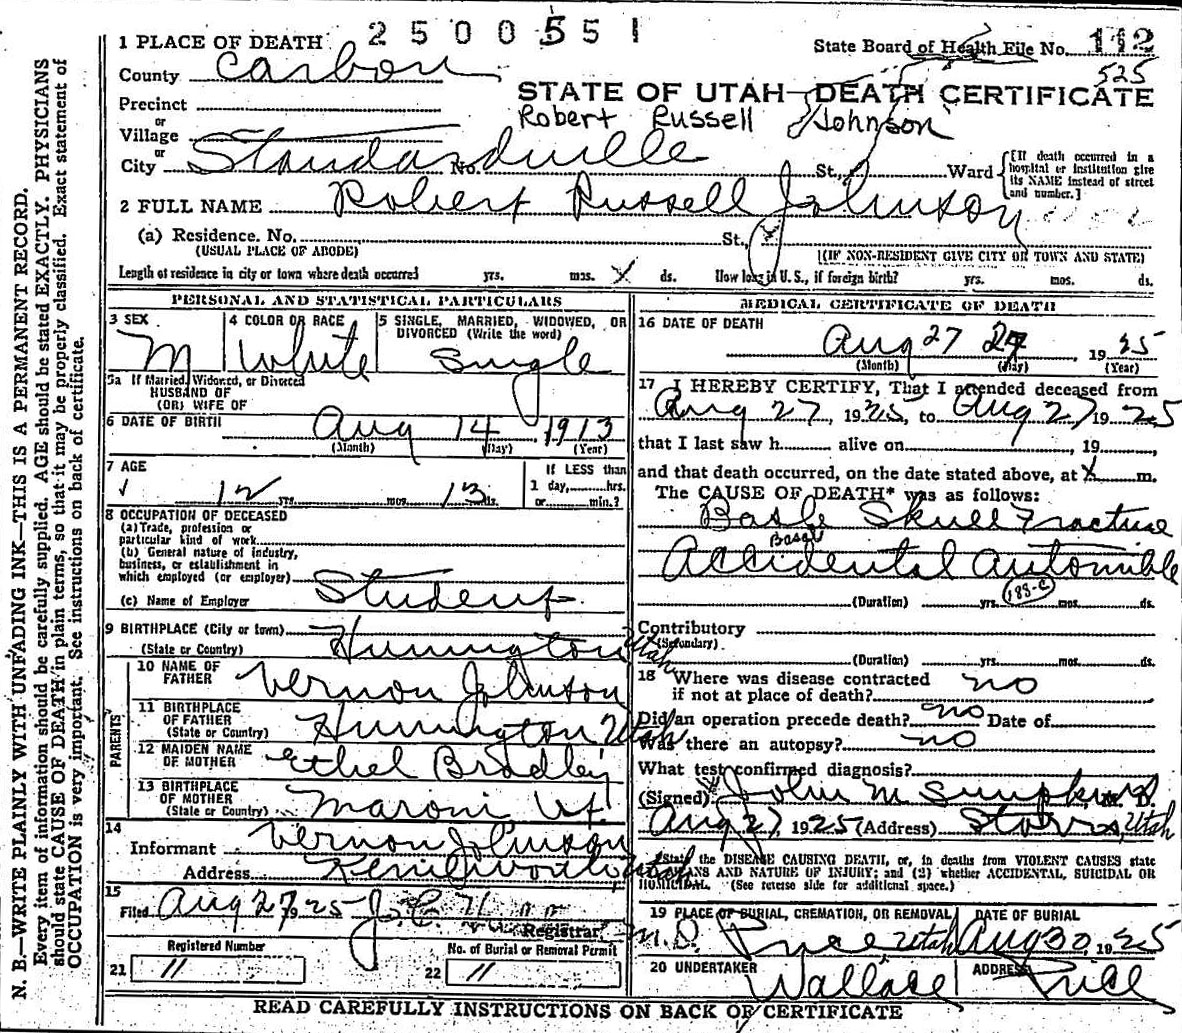 2500551
1 PLACE OF DEATH
State Board of Health File No. 112
County Carbon
525
STATE OF UTAH—DEATH CERTIFICATE
Precinct
or
Village
Robert Russell Johnson
or
City Standardville No. St., Ward
[If death occurred in a hospital or institution give its NAME instead of street and number.]
2 FULL NAME Robert Russell Johnson
(a) Residence. No. St.,
(USUAL PLACE OF ABODE)
(IF NON-RESIDENT GIVE CITY OR TOWN AND STATE)
Length of residence in city or town where death occurred yrs. mos. X ds. How long in U. S., if foreign birth? yrs. mos. ds.
PERSONAL AND STATISTICAL PARTICULARS
3 SEX
M
4 COLOR OR RACE
White
5 SINGLE, MARRIED, WIDOWED, OR DIVORCED (Write the word)
Single
5a If Married, Widowed, or Divorced
HUSBAND OF
(OR) WIFE OF
6 DATE OF BIRTH
Aug 14 1913
(Month) (Day) (Year)
7 AGE
12 yrs. mos. 13 ds.
If LESS than
1 day, hrs.
or min.?
8 OCCUPATION OF DECEASED
(a) Trade, profession or
particular kind of work
(b) General nature of industry,
business, or establishment in
which employed (or employer)
Student
(c) Name of Employer
9 BIRTHPLACE (City or town)
(State or Country) Hunnington Utah
PARENTS
10 NAME OF
FATHER Vernon Johnson
11 BIRTHPLACE
OF FATHER
(State or Country) Hunnington Utah
12 MAIDEN NAME
OF MOTHER Ethel Bradley
13 BIRTHPLACE
OF MOTHER
(State or Country) Maroni Ut.
14
Informant Vernon Johnson
Address Kenilworth, Utah
15
Filed Aug 27 1925 J. C.
Registrar
Registered Number
21 11
No. of Burial or Removal Permit
22 11
MEDICAL CERTIFICATE OF DEATH
16 DATE OF DEATH
Aug 27 27, 1925
(Month) (Day) (Year)
17 I HEREBY CERTIFY, That I attended deceased from
Aug 27, 1925, to Aug 27, 1925
that I last saw h alive on , 19 ,
and that death occurred, on the date stated above, at X m.
The CAUSE OF DEATH* was as follows:
Basle Skull Fracture
Basal
Accidental Automible
188-c
(Duration) yrs. mos. ds.
Contributory
(Secondary)
(Duration) yrs. mos. ds.
18 Where was disease contracted
if not at place of death? no
Did an operation precede death? no Date of
Was there an autopsy? no
What test confirmed diagnosis?
(Signed) John M Simpkins M. D.
Aug 27, 1925 (Address) Storrs, Utah
*State the DISEASE CAUSING DEATH, or, in deaths from VIOLENT CAUSES state
MEANS AND NATURE OF INJURY; and (2) whether ACCIDENTAL, SUICIDAL OR
HOMICIDAL. (See reverse side for additional space.)
19 PLACE OF BURIAL, CREMATION, OR REMOVAL
Price Utah
DATE OF BURIAL
Aug 30, 1925
20 UNDERTAKER
Wallace
ADDRESS
Price
READ CAREFULLY INSTRUCTIONS ON BACK OF CERTIFICATE
N. B.—WRITE PLAINLY WITH UNFADING INK—THIS IS A PERMANENT RECORD.
Every item of information should be carefully supplied. AGE should be stated EXACTLY. PHYSICIANS
should state CAUSE OF DEATH in plain terms, so that it may be properly classified. Exact statement of
OCCUPATION is very important. See instructions on back of certificate.